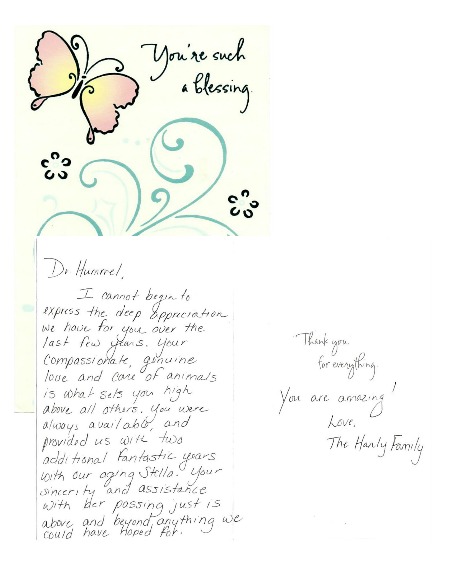 You're such
a blessing.
Dr Hummel,
I cannot begin to
express the deep appreciation
we have for you over the
last few years. Your
compassionate, genuine
love and care of animals
is what sets you high
above all others. You were
always available, and
provided us with two
additional fantastic years
with our aging Stella. Your
sincerity and assistance
with her passing just is
above and beyond anything we
could have hoped for.
Thank you
for everything.
You are amazing!
Love,
The Hanly Family